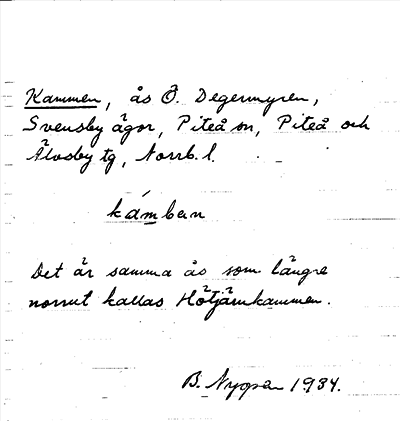 Kammen, ås Ö. Degermyren,
Svensby ägor, Piteå sn, Piteå och
Älvsby tg, Norrb. l.
kámban
Det är samma ås som längre
norrut kallas Hötjärnkammen.
B. 1934.